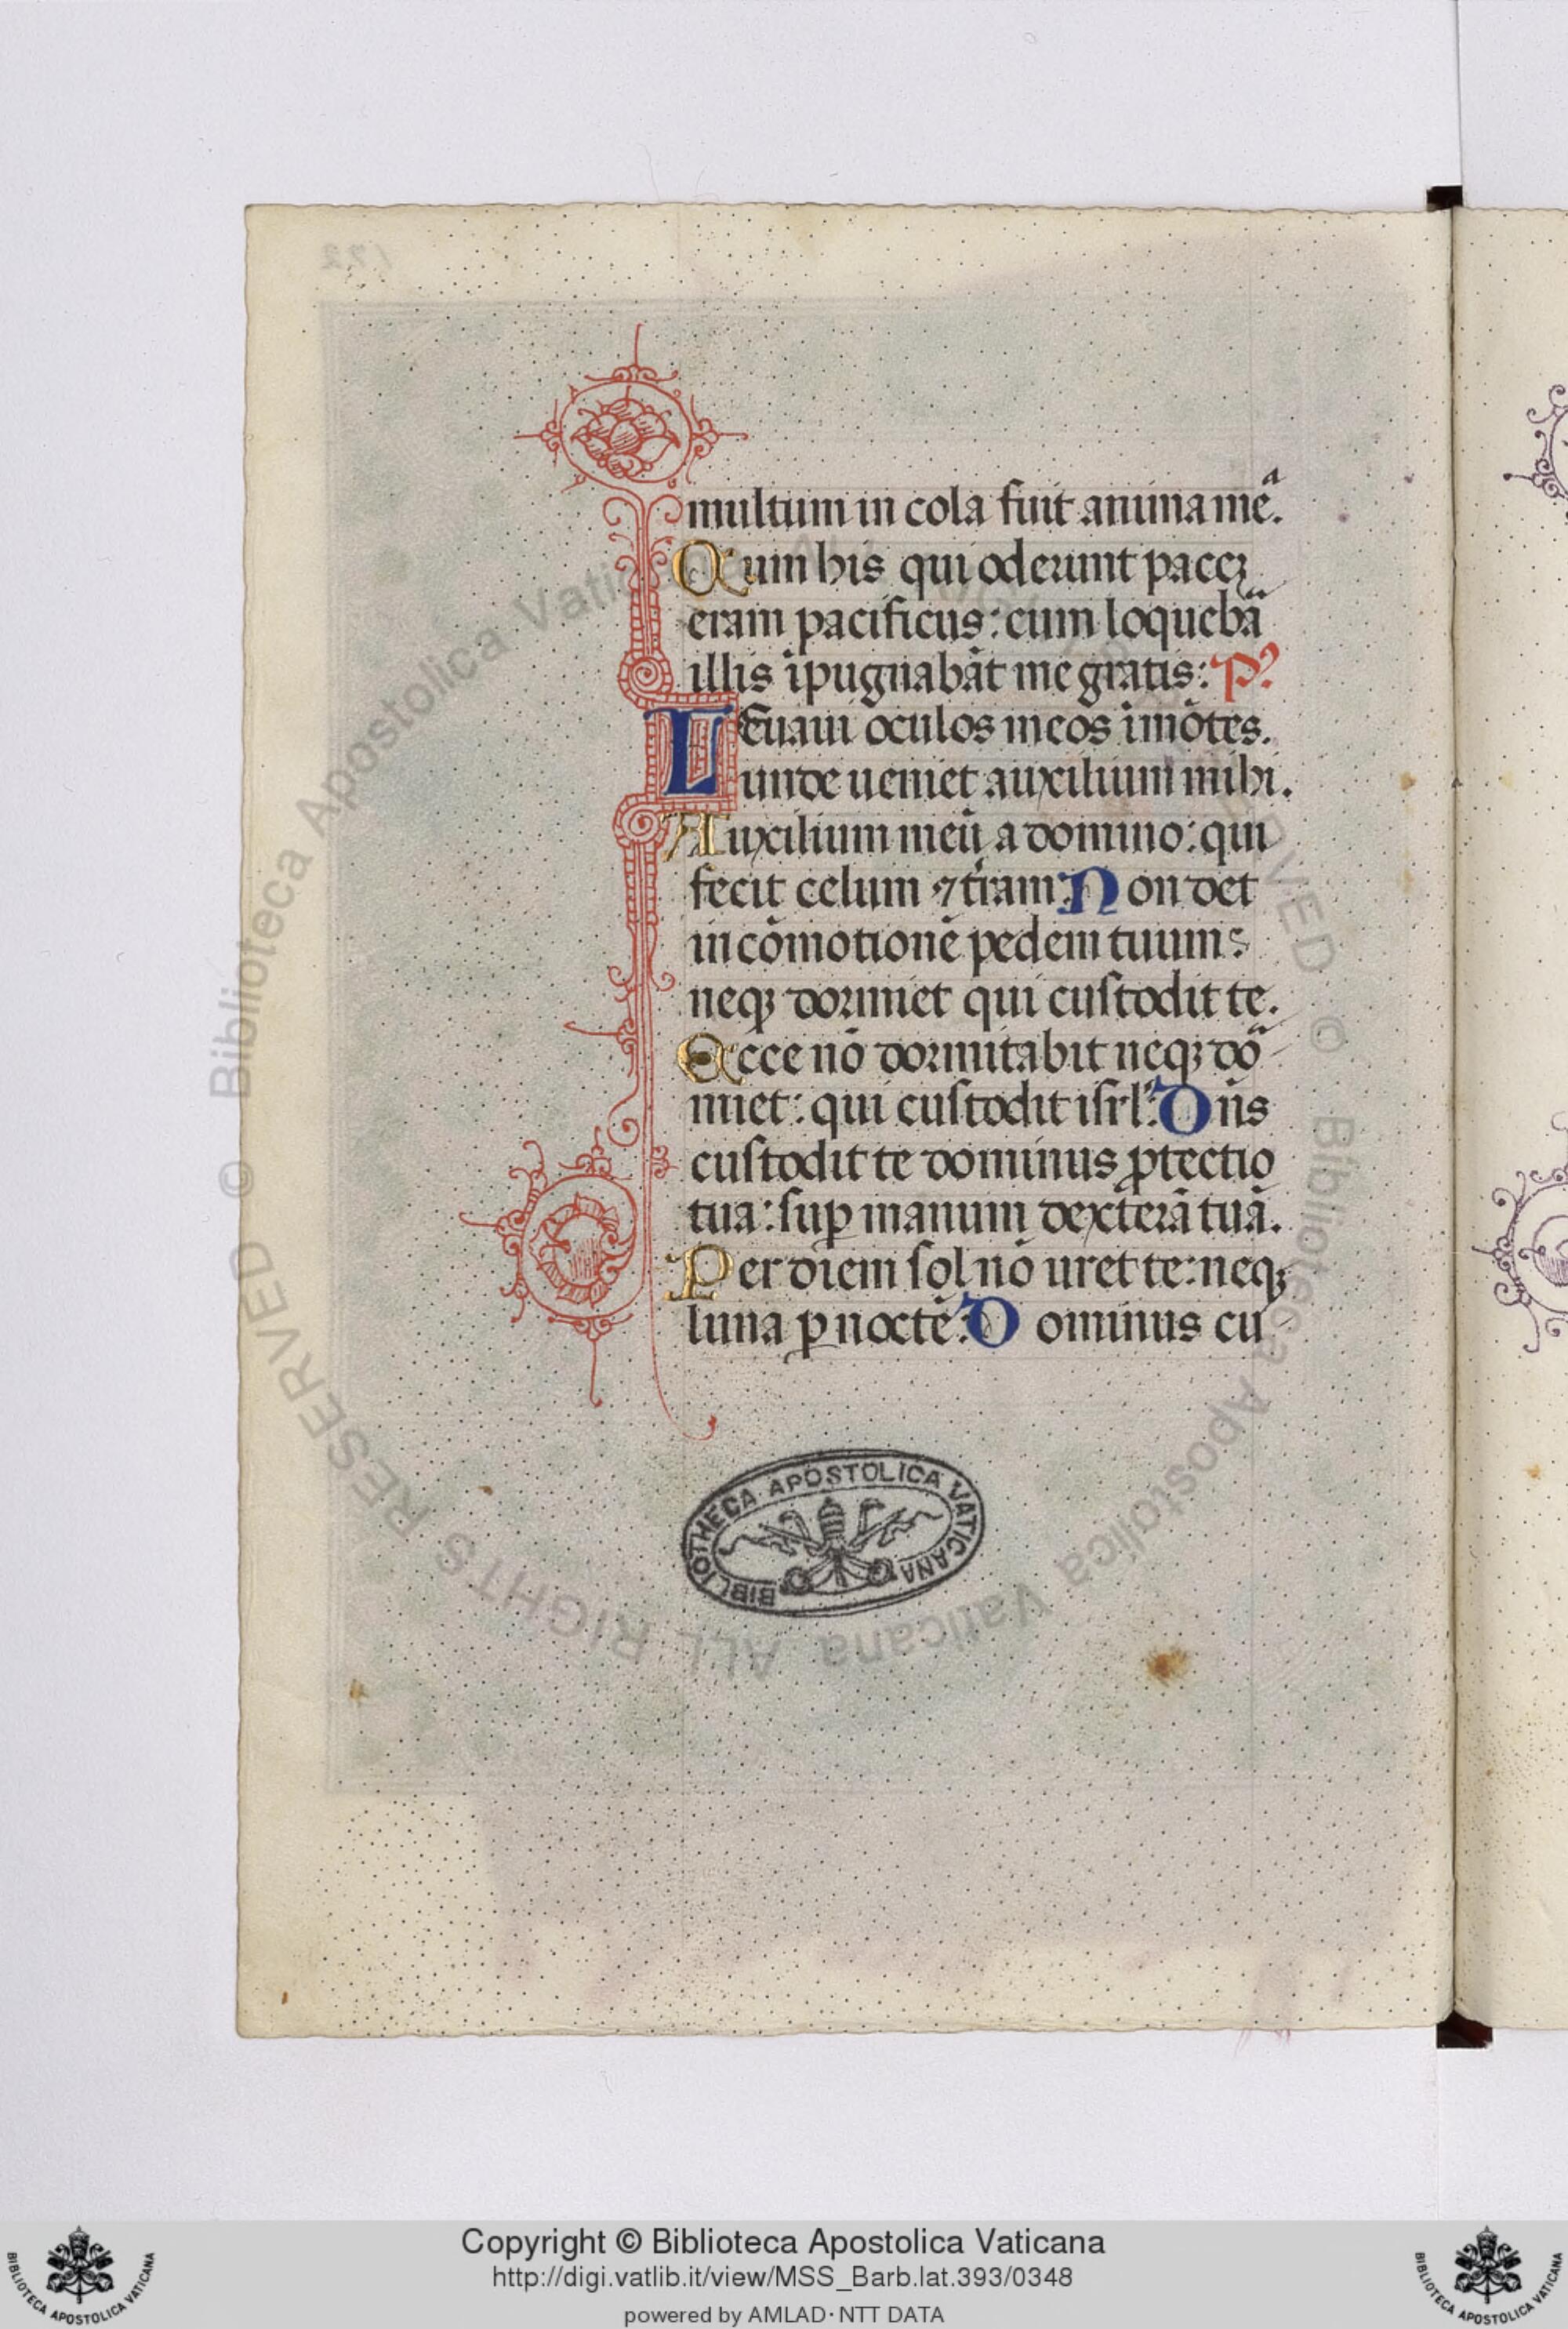 multum in cola fuit anima meᵃ.
Cum his qui oderunt paceʒ
eram pacificus: cum loquebã
illis ĩpugnabãt me gratis: p̾s
LEuaui oculos meos ĩ mõtes.
unde ueniet auxilium mihi.
Auxilium meũ a domino: qui
fecit celum ⁊ tr̃am: Non det
in cõmotionẽ pedem tuum:
neqʒ dormiet qui custodit te.
Ecce nõ dormitabit neqʒ doᷓ
miet: qui custodit isrl̃: Dñs
custodit te dominus ꝓtectio
tua: suꝑ manum dexterã tuã.
Per diem sol nõ uret te: neqʒ
luna ꝑ noctẽ: Dominus cu
BIBLIOTHECA APOSTOLICA VATICANA
© Biblioteca Apostolica Vaticana ALL RIGHTS RESERVED
Copyright © Biblioteca Apostolica Vaticana
http://digi.vatlib.it/view/MSS_Barb.lat.393/0348
powered by AMLAD·NTT DATA
BIBLIOTECA APOSTOLICA VATICANA
BIBLIOTECA APOSTOLICA VATICANA